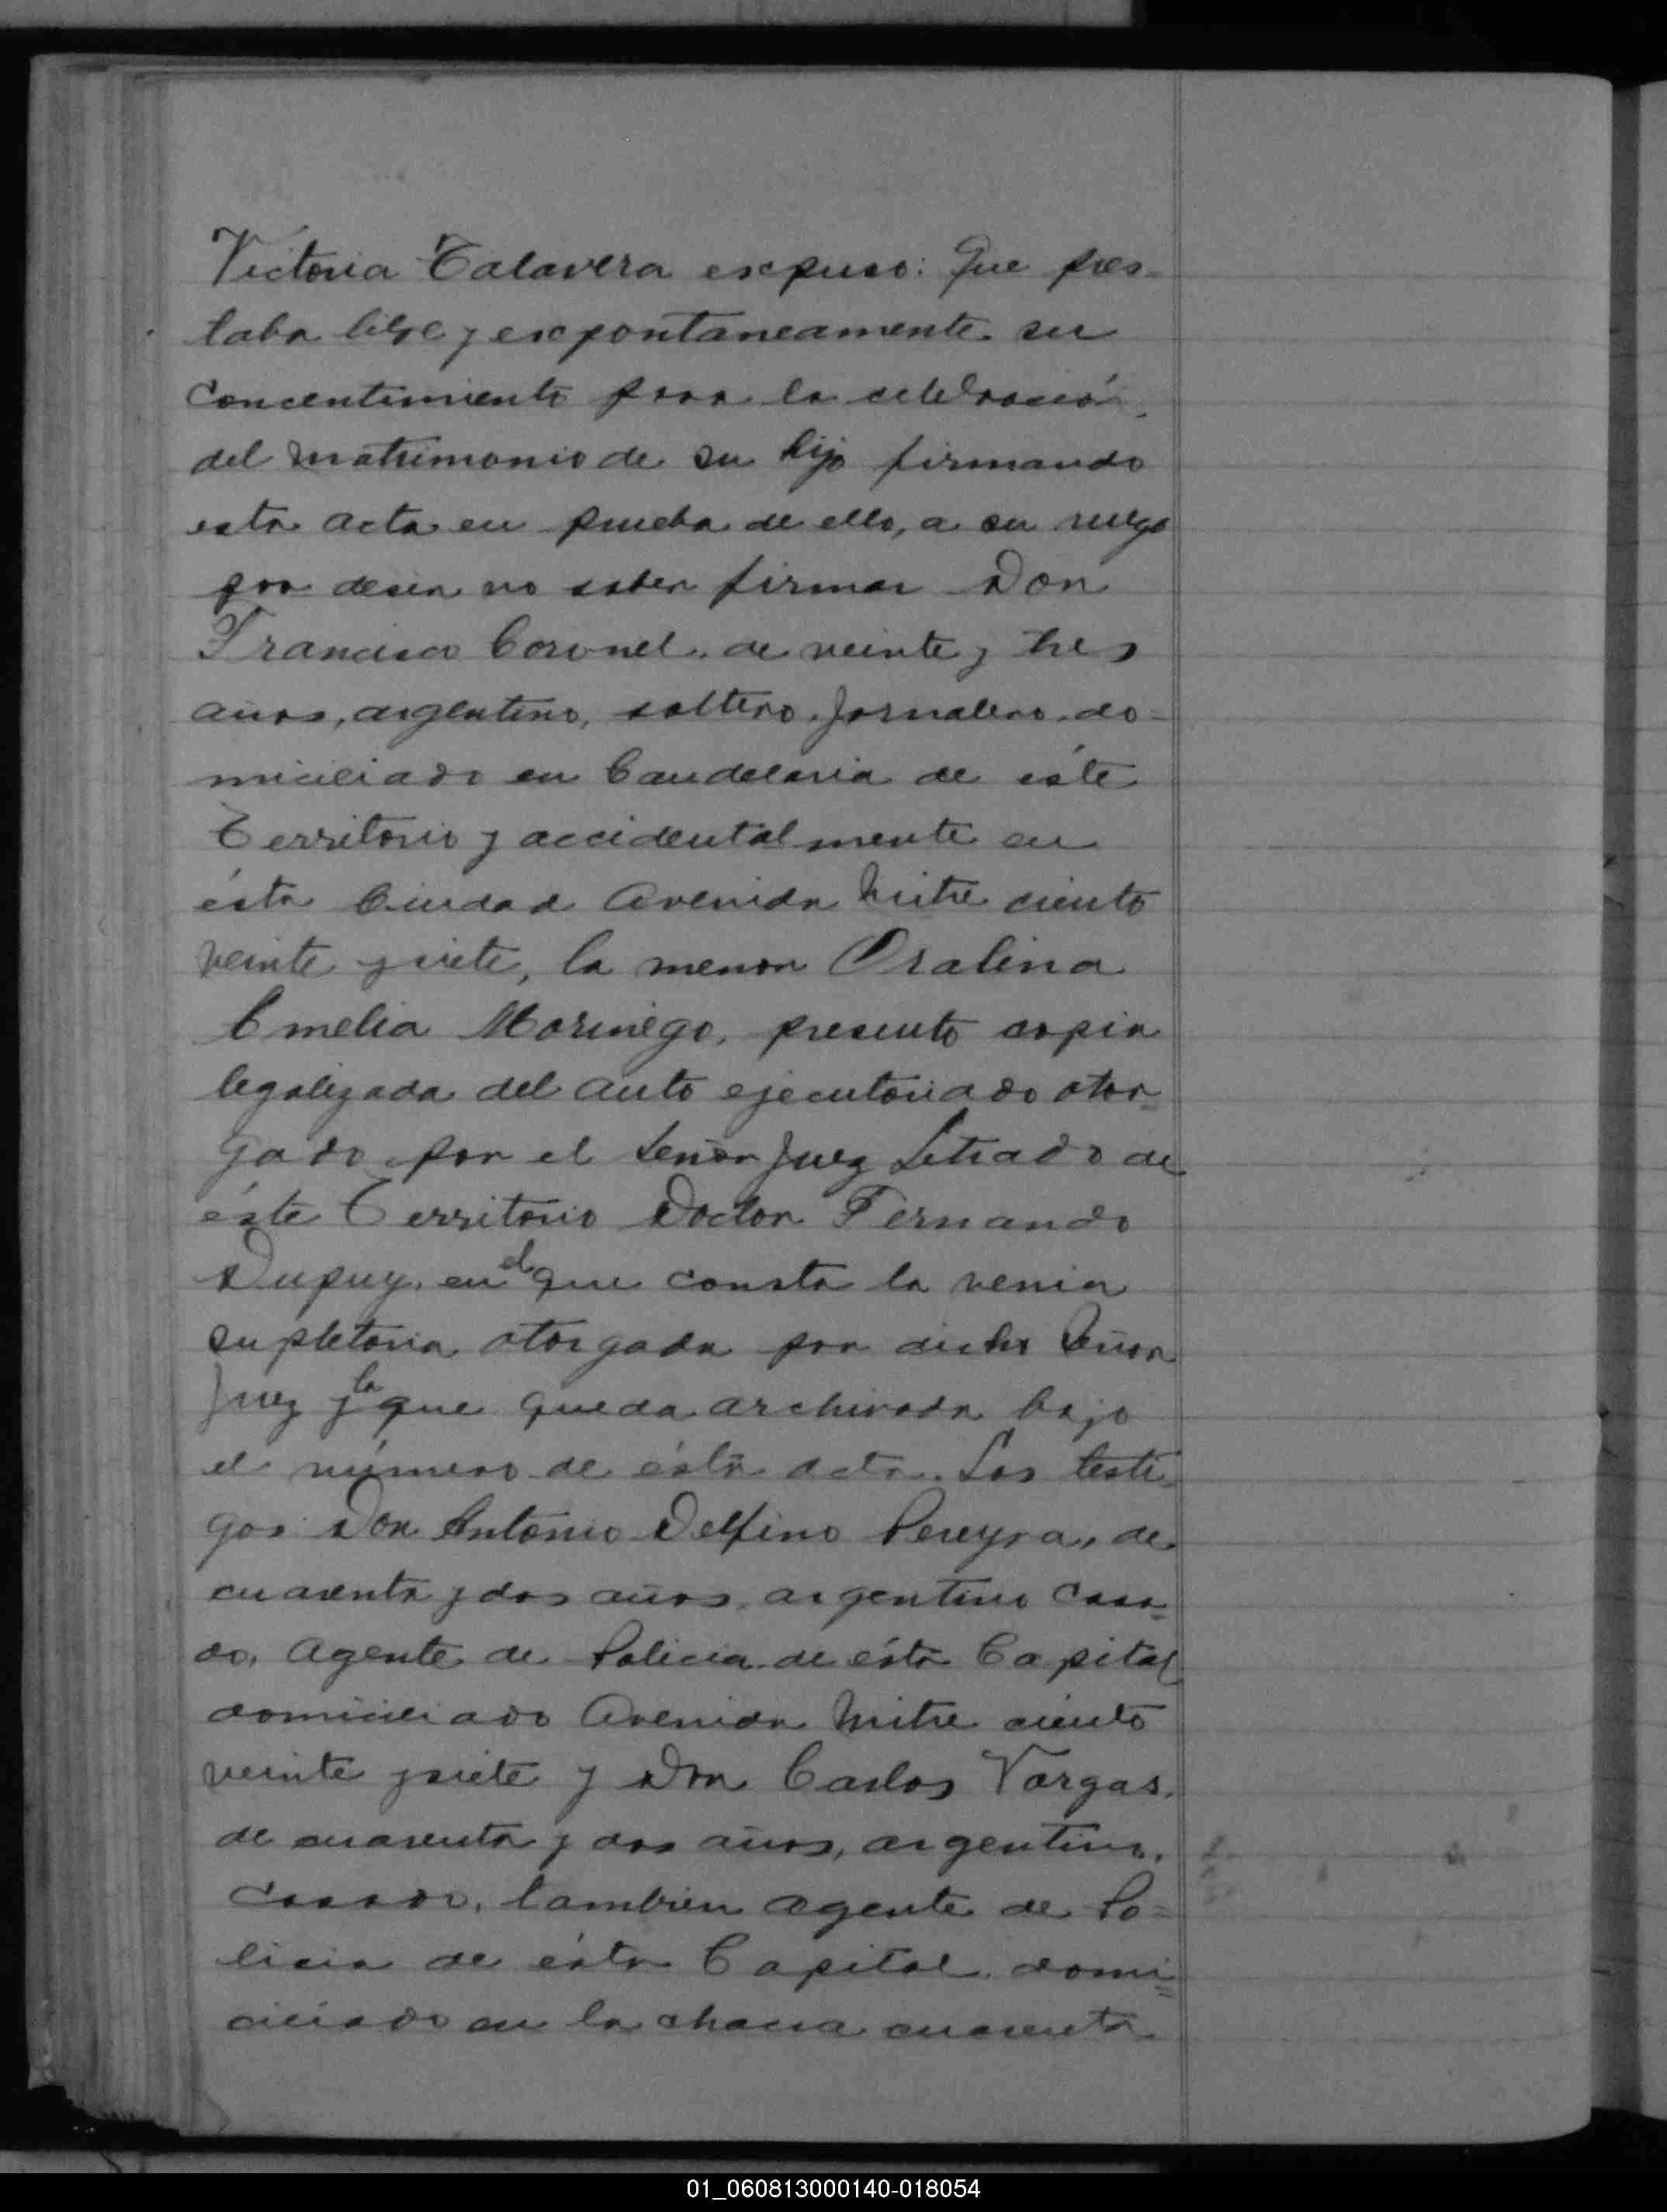 Victoria Talavera expuso: Que pres-
taba libre y expontaneamente su
concentimiento para la celebración
del matrimonio de su hijo firmando
esta acta en prueba de ello, a su ruego
por desir no saber firmar Don
Francisco Coronel, de veinte y tres
años, argentino, soltero, jornalero, do-
miciliado en Candelaria de éste
Territorio y accidentalmente en
ésta Ciudad Avenida Mitre ciento
veinte y siete, la menor Oralina
Emelia Morinigo, presento copia
legalizada del auto ejecutoriado otor-
gado por el Señor Juez Letrado de
éste Territorio Doctor Fernando
Dupuy, en el que consta la venia
supletoria otorgada por dicho Señor
Juez y la que queda archivada bajo
el número de ésta acta. Los testi-
gos Don Antonio Delfino Pereyra, de
cuarenta y dos años, argentino casa-
do, Agente de Policia de ésta Capital
domiciliado Avenida Mitre ciento
veinte y siete y Don Carlos Vargas,
de cuarenta y dos años, argentino,
casado, tambien agente de Po=
licia de ésta Capital, domi=
ciliado en la chacra cuarenta
01_060813000140-018054